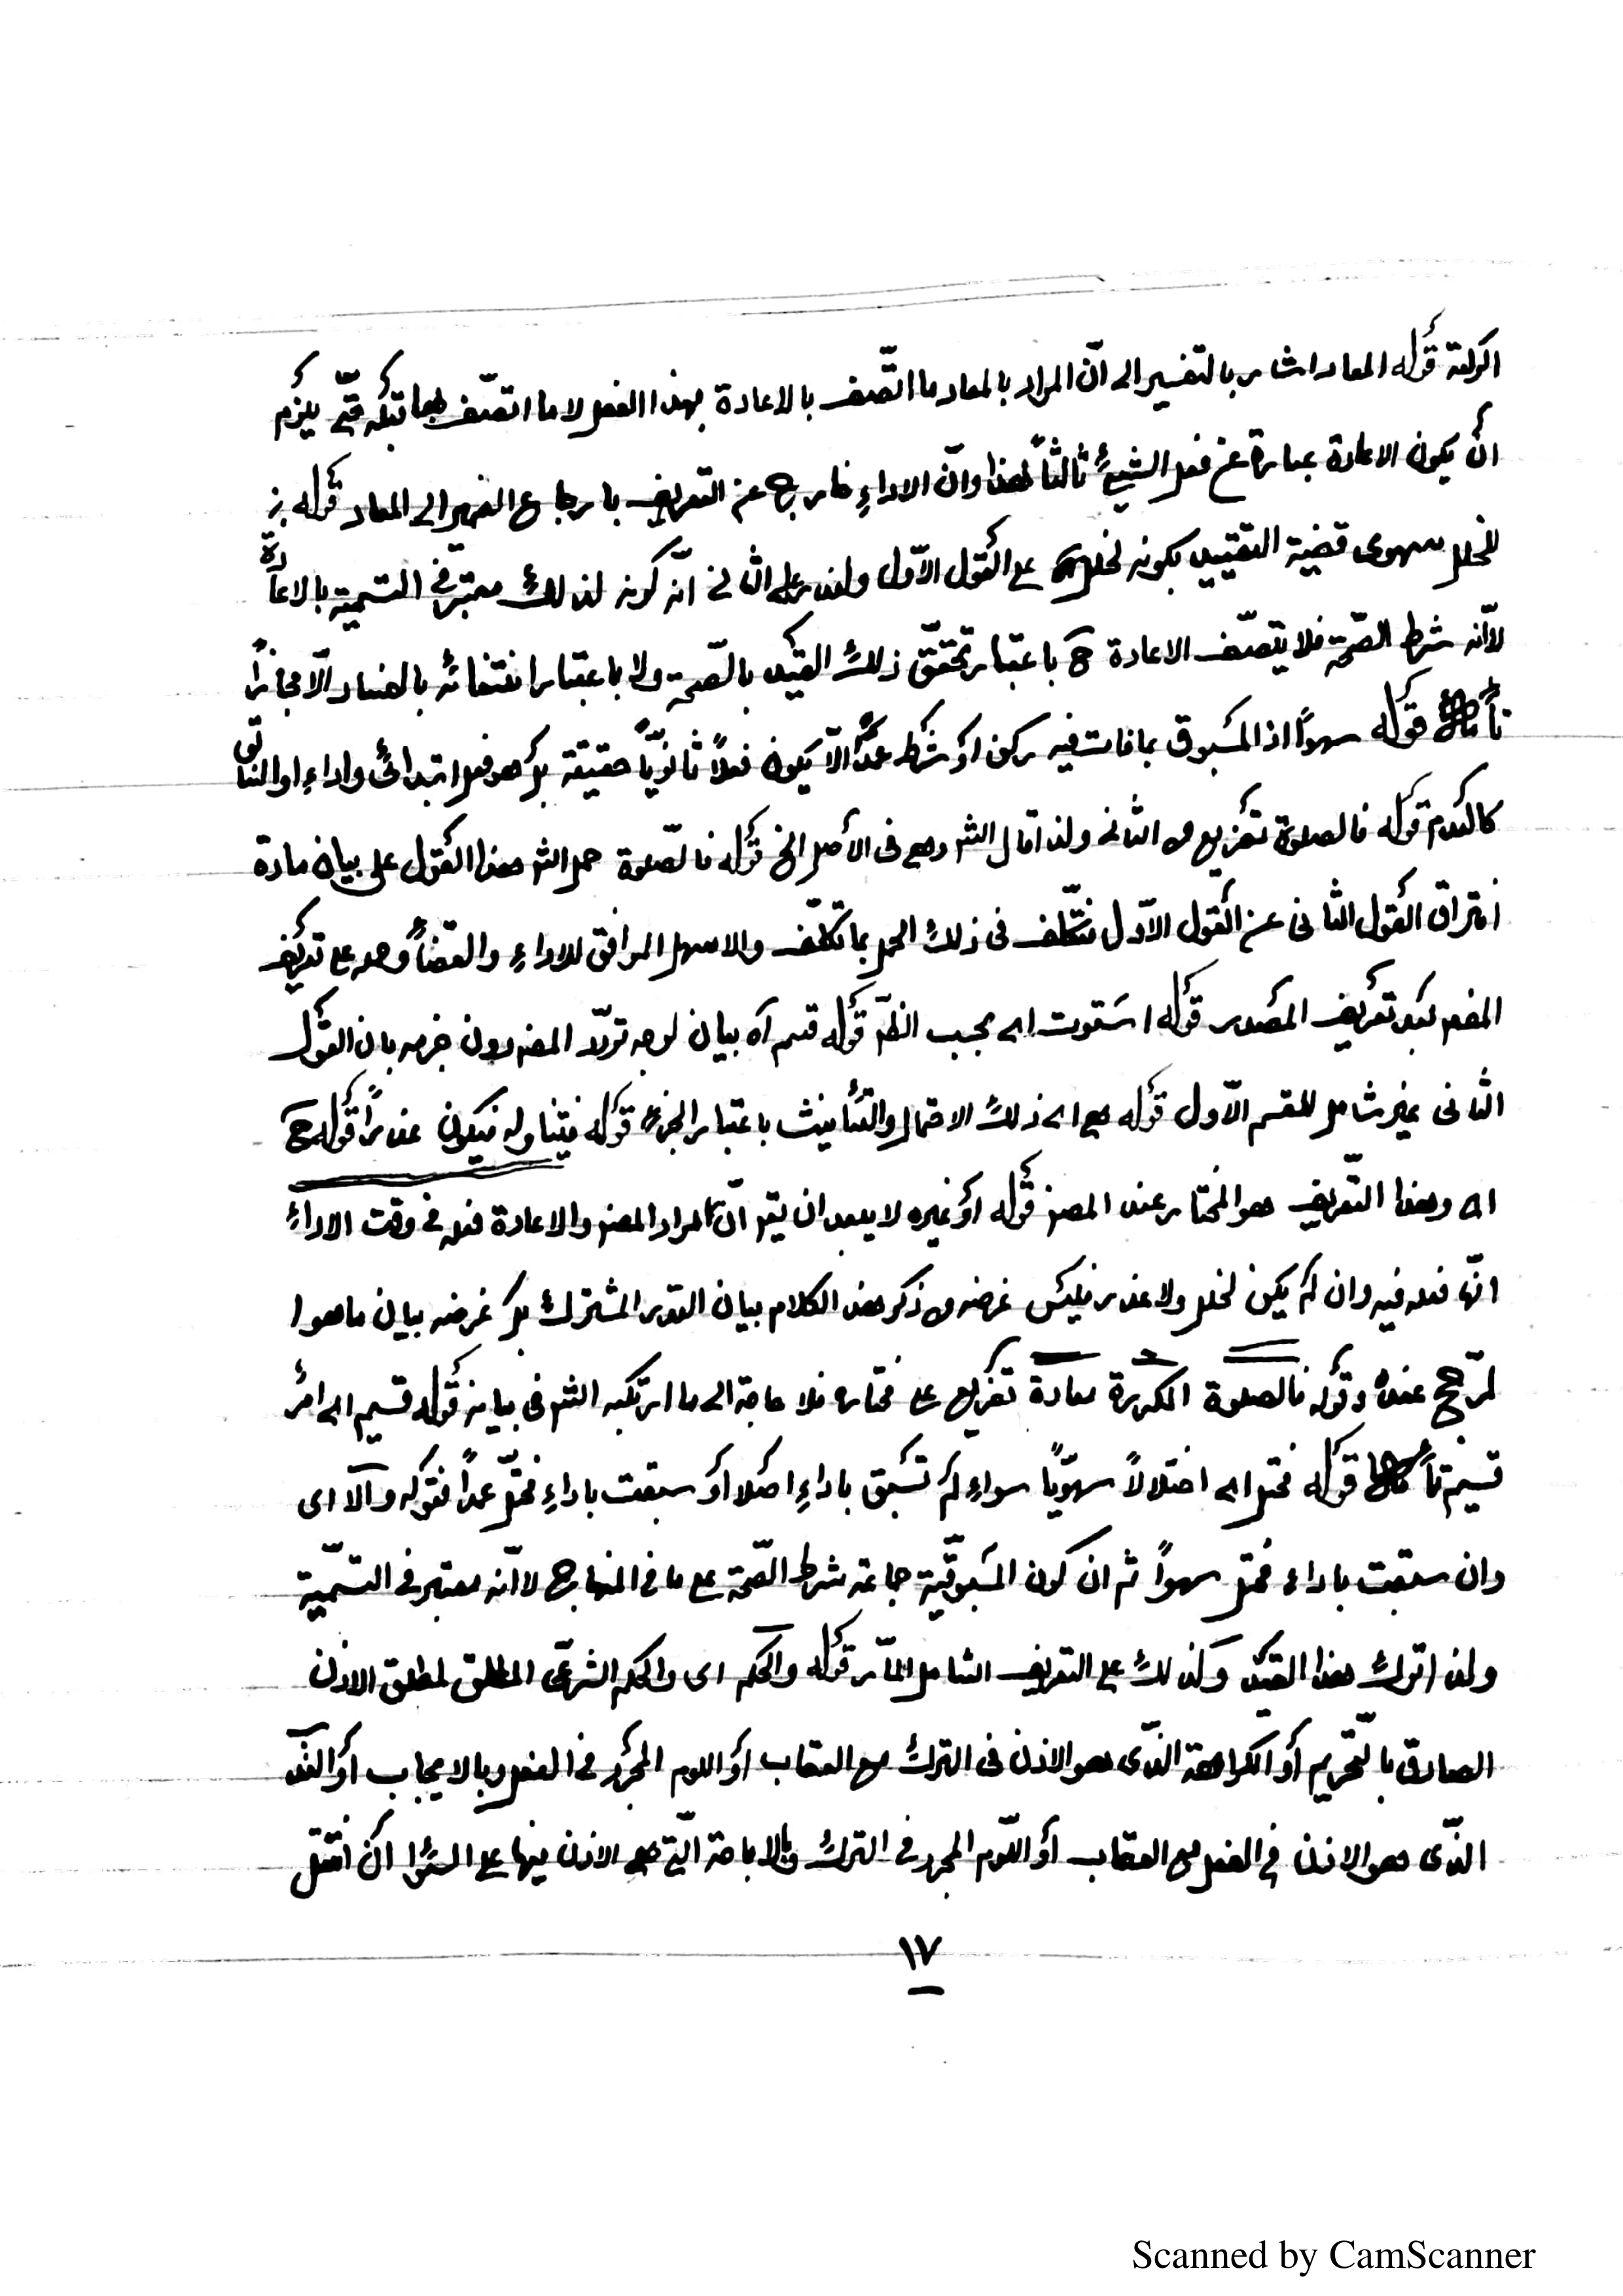 الركعة قوله المعاد اشار بالتفسير الى أنّ المراد بالمعاد ما اتّصف بالاعادة بهذا الفعل لا ما اتصّف بها قبله حتّى يلزم
أن يكون الاعادة عبارة عن فعل الشيئ ثالثاً هذا وانّ الاداء خارج عن التعريف بارجاع الضمير الى المعاد قوله
لخلل سهوى قضية التقييد بكونه لخلل على القول الاوّل ولعذر على الثانى انّه كونه لذلك معتبر فى التسمية بالاعادة
لا أنّه شرط الصّحة فلا يتصّف الاعادة ح باعتبار تحقّق ذلك القيد بالصّحة ولا باعتبار انتفائه بالفساد الّا مجازاً
تأمل قوله سهواً اذ المسبوق بما فات فيه ركن أو شرط عمداً لا يكون فعلاً ثانويّاً حقيقة بل هو فعل ابتدائى واداء اوالثانى
كالعدم قوله فالصلوة تفريع الثانى ولذا قال الش وهى فى الأصل الخ قوله فالصّلوة حمل الش هذا القول على بيان مادة
افتراق القول الثانى عن القول الاوّل فتكلّف فى ذلك الحمل بما تكلّف والاسهل الموافق للاداء والقضاء حمله على تعريف
المفعول بعد تعريف المصدر قوله استوت اى بحسب الظّ قوله قسم آه بيان لوجه تردّد المص دون جزمه بان القول
الثانى غير شامل للقسم الاوّل قوله هى اى ذلك الاحتمال والتأنيث باعتبار الخبر قوله فيتناوله فيكون عذراً قوله ح
اى وهذا التّعريف هو المختار عند المص قوله أو غيره لا يبعد ان يقال انّ المراد المص والاعادة فعله فى وقت الاداء
انّها فعله فيه وان لم يكن لخلل ولا عذر فليس غرضه من ذكر هذا الكلام بيان القدر المشترك بل غرضه بيان ما هو ا
لمرّجح عنده وقوله فالصلوة المكررة معادة تفريع على مختاره فلا حاجة الى ما ارتكبه الش فى بيانه قوله قسيم اى امر
قسيم تأمل قوله مختل اى اختلالاً سهويّاً سواء لم تسبق باداء اصلا أو سبقت باداء مختلّ عمداً فقوله والّا اى
وان سبقت باداء مختل سهواً ثم ان كون المسبوقيّة جماعة شرط الصّحة على ما فى المنهاج لا انّه معتبر فى التسمّية
ولذا ترك هذا القيد وكذلك على التعريف الشامل المارّ قوله والحكم اى والحكم الشرعّى المطلق لمطلق الاذن
الصادق بالتّحريم أو الكراهة الذّى هو الاذن فى الترك مع العقاب أو اللوم المجرد فى الفعل وبالايجاب أو الندب
الذّى هو الاذن فى الفعل مع العقاب أو اللّوم المجرد فى الترك وبالاباحة الّتى هى الاذن فيها على السّواء
١٧
Scanned by CamScanner